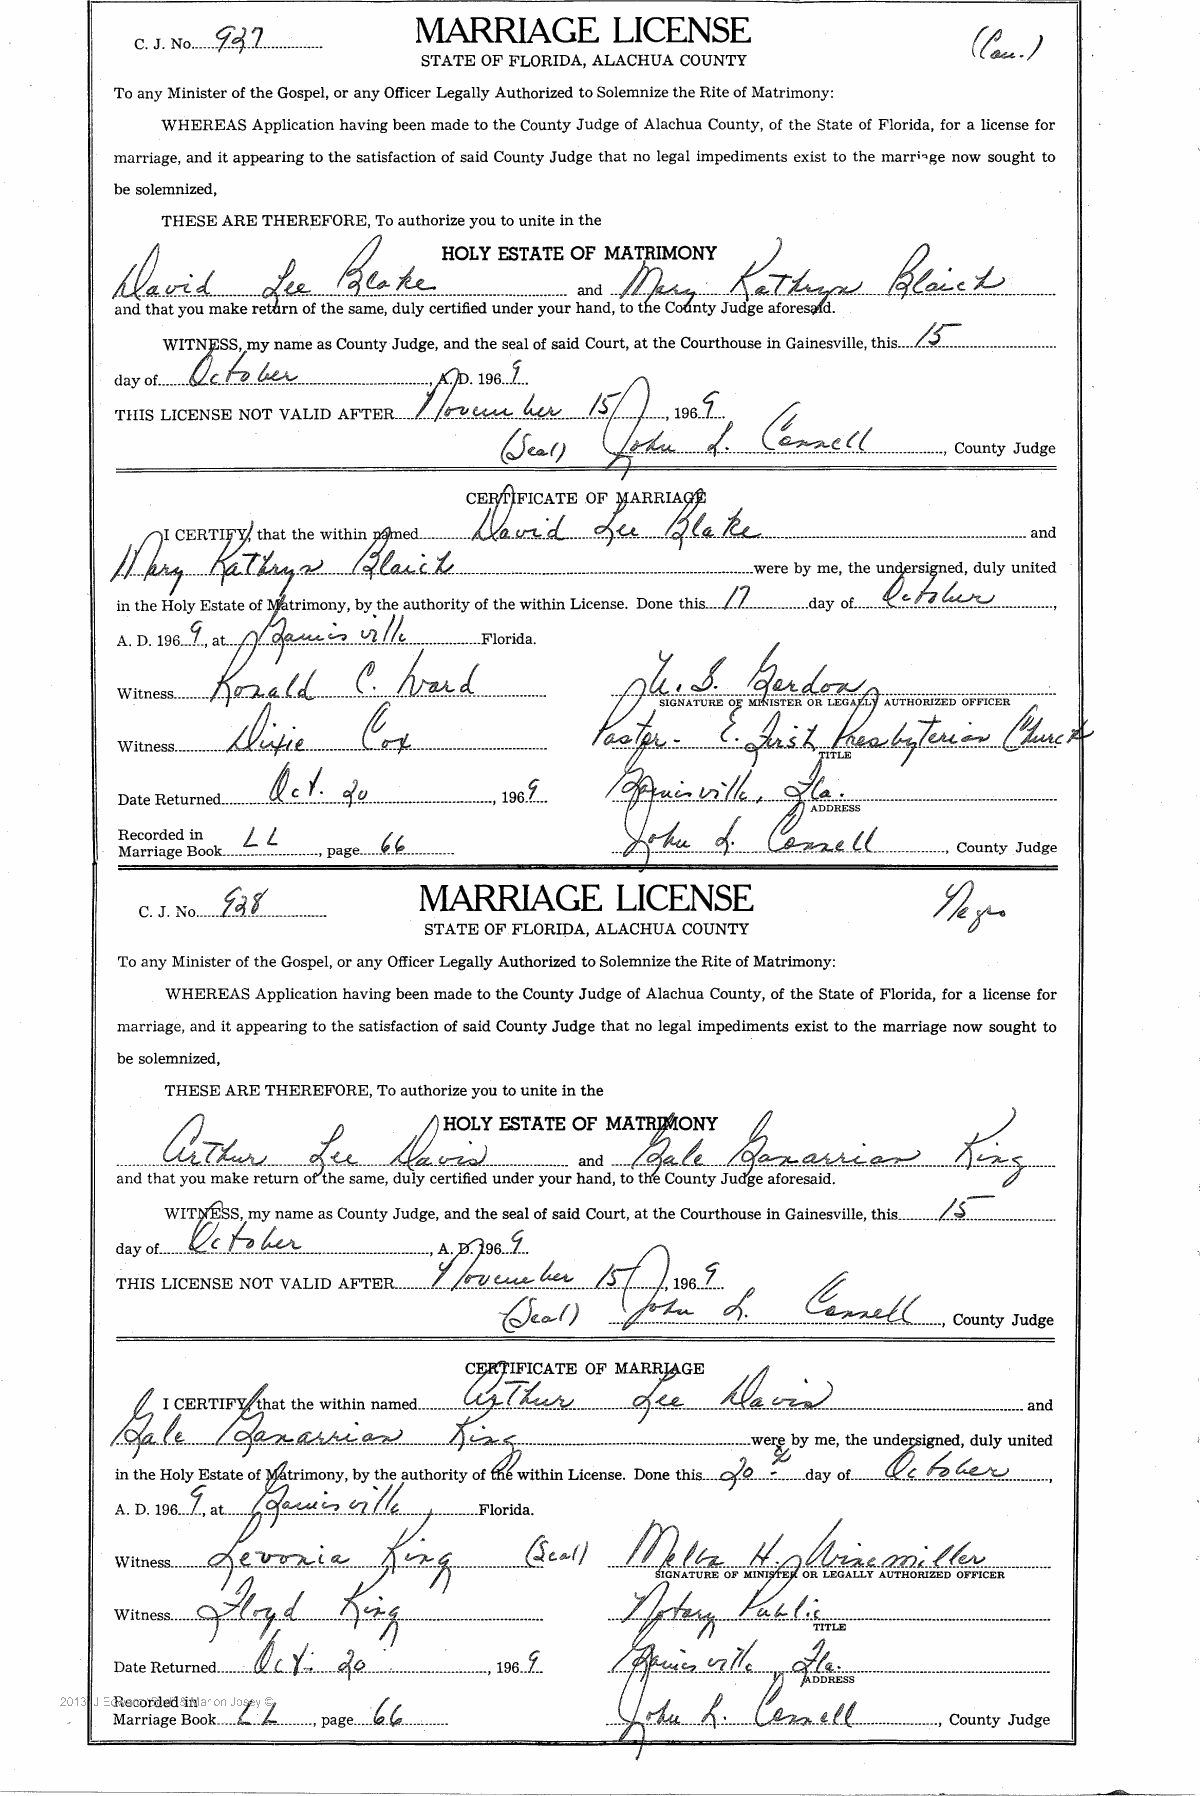 C. J. No. 937
MARRIAGE LICENSE
(Cau.)
STATE OF FLORIDA, ALACHUA COUNTY
To any Minister of the Gospel, or any Officer Legally Authorized to Solemnize the Rite of Matrimony:
WHEREAS Application having been made to the County Judge of Alachua County, of the State of Florida, for a license for
marriage, and it appearing to the satisfaction of said County Judge that no legal impediments exist to the marriage now sought to
be solemnized,
THESE ARE THEREFORE, To authorize you to unite in the
HOLY ESTATE OF MATRIMONY
David Lee Blake and Mary Kathryn Blaich
and that you make return of the same, duly certified under your hand, to the County Judge aforesaid.
WITNESS, my name as County Judge, and the seal of said Court, at the Courthouse in Gainesville, this 15
day of October, A. D. 1969
THIS LICENSE NOT VALID AFTER November 15, 1969
(Seal) John L. Connell, County Judge
CERTIFICATE OF MARRIAGE
I CERTIFY, that the within named David Lee Blake and
Mary Kathryn Blaich were by me, the undersigned, duly united
in the Holy Estate of Matrimony, by the authority of the within License. Done this 17 day of October,
A. D. 1969, at Gainesville Florida.
Witness Ronald C. Ward U. S. Gordon
SIGNATURE OF MINISTER OR LEGALLY AUTHORIZED OFFICER
Witness Dixie Cox Pastor - E. First Presbyterian Church
TITLE
Date Returned Oct. 20, 1969 Gainesville, Fla.
ADDRESS
Recorded in
Marriage Book LL, page 66 John L. Connell, County Judge
C. J. No. 938
MARRIAGE LICENSE
Negro
STATE OF FLORIDA, ALACHUA COUNTY
To any Minister of the Gospel, or any Officer Legally Authorized to Solemnize the Rite of Matrimony:
WHEREAS Application having been made to the County Judge of Alachua County, of the State of Florida, for a license for
marriage, and it appearing to the satisfaction of said County Judge that no legal impediments exist to the marriage now sought to
be solemnized,
THESE ARE THEREFORE, To authorize you to unite in the
HOLY ESTATE OF MATRIMONY
Arthur Lee Davis and Gale Ganarrian King
and that you make return of the same, duly certified under your hand, to the County Judge aforesaid.
WITNESS, my name as County Judge, and the seal of said Court, at the Courthouse in Gainesville, this 15
day of October, A. D. 1969
THIS LICENSE NOT VALID AFTER November 15, 1969
(Seal) John L. Connell, County Judge
CERTIFICATE OF MARRIAGE
I CERTIFY, that the within named Arthur Lee Davis and
Gale Ganarrian King were by me, the undersigned, duly united
in the Holy Estate of Matrimony, by the authority of the within License. Done this 20 day of October,
A. D. 1969, at Gainesville, Florida.
Witness Levonia King (Seal) Melba H. Winemiller
SIGNATURE OF MINISTER OR LEGALLY AUTHORIZED OFFICER
Witness Floyd King Notary Public
TITLE
Date Returned Oct. 20, 1969 Gainesville Fla.
ADDRESS
Recorded in
Marriage Book LL, page 66 John L. Connell, County Judge